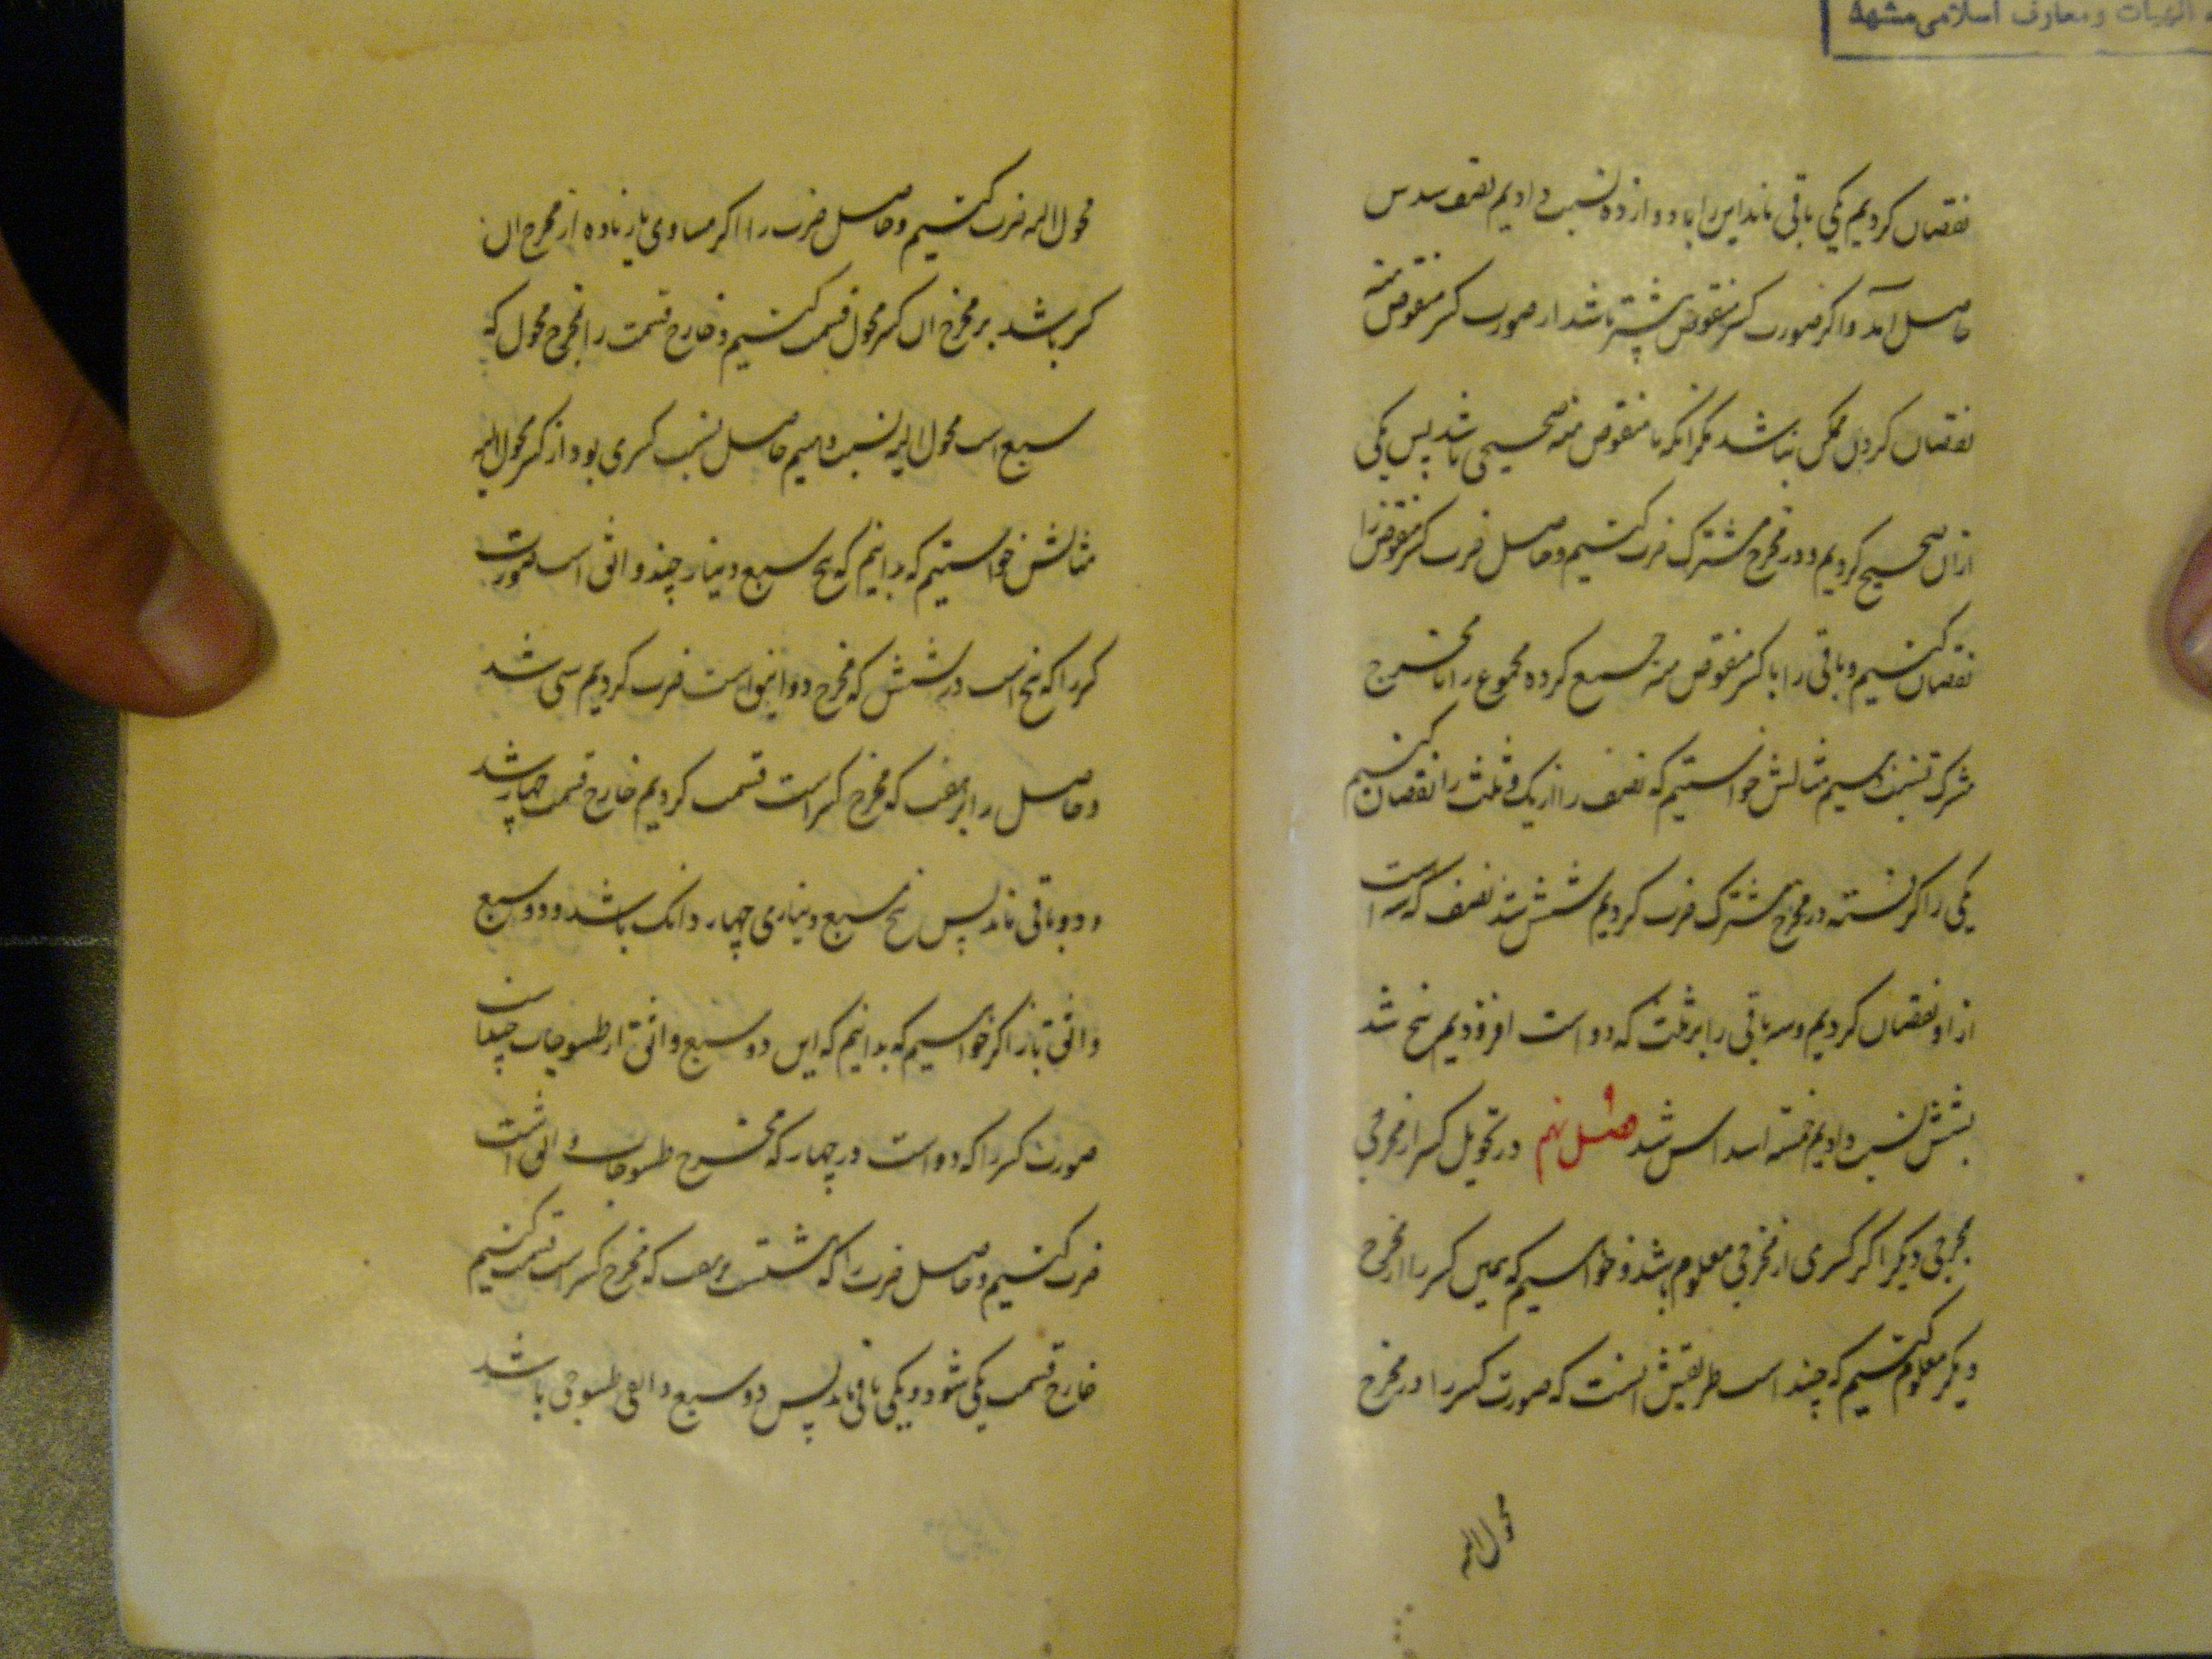 الهیات و معارف اسلامی مشهد
نقصان کردیم یکی باقی ماند این را با دوازده نسبت دادیم نصف سدس
حاصل آمد و اگر صورت کسر منقوص بیشتر باشد از صورت کسر منقوص منه
نقصان کردن ممکن نباشد مگر آنکه با منقوص منه صحیحی باشد پس یکی
ازان صحیح کردیم و در مخرج مشترک ضرب کنیم و حاصل ضرب کسر منقوص را
نقصان کنیم و باقی را با کسر منقوص منه جمع کرده مجموع را با مخرج
مشترک نسبت دهیم مثالش خواستیم که نصف را از یک و ثلث را نقصان کنیم
یکی را گرفته در مخرج مشترک ضرب کردیم شش شد نصف که سه است
ازو نقصان کردیم و سه باقی را بر ثلث که دو است افزودیم پنج شد
بشش نسبت دادیم خمسه اسداس شد فصل نهم در تحویل کسر از مخرجی
بمخرجی دیگر اگر کسری از مخرجی معلوم باشد و خواهیم که همین کسر را از مخرج
دیگر معلوم کنیم که چند است طریقش آنست که صورت کسر را در مخرج
محول الیه
محول الیه ضرب کنیم و حاصل ضرب را اگر مساوی یا زیاده از مخرج آن
کسر باشد بر مخرج آن کسر محول قسمت کنیم و خارج قسمت را بمخرج محول که
سبع است محول الیه نسبت دهیم حاصل نسبت کسری بود از کسر محول الیه
مثالش خواستیم که بدانیم که پنج سبع دینار چند دانق است صورت
کسر را که پنج است در شش که مخرج دوانیق است ضرب کردیم سی شد
و حاصل را بر هفت که مخرج کسر است قسمت کردیم خارج قسمت چهار شد
و دو باقی ماند پس پنج سبع دیناری چهار دانک باشد و دو سبع
دانقی باز اگر خواهیم که بدانیم که این دو سبع دانق از طسوجات چند است
صورت کسر را که دو است در چهار که مخرج طسوجات دانق است
ضرب کنیم و حاصل ضرب را که هشتست بر هفت که مخرج کسر است قسمت کنیم
خارج قسمت یکی شود و یکی باقی ماند پس دو سبع دانقی طسوجی باشد